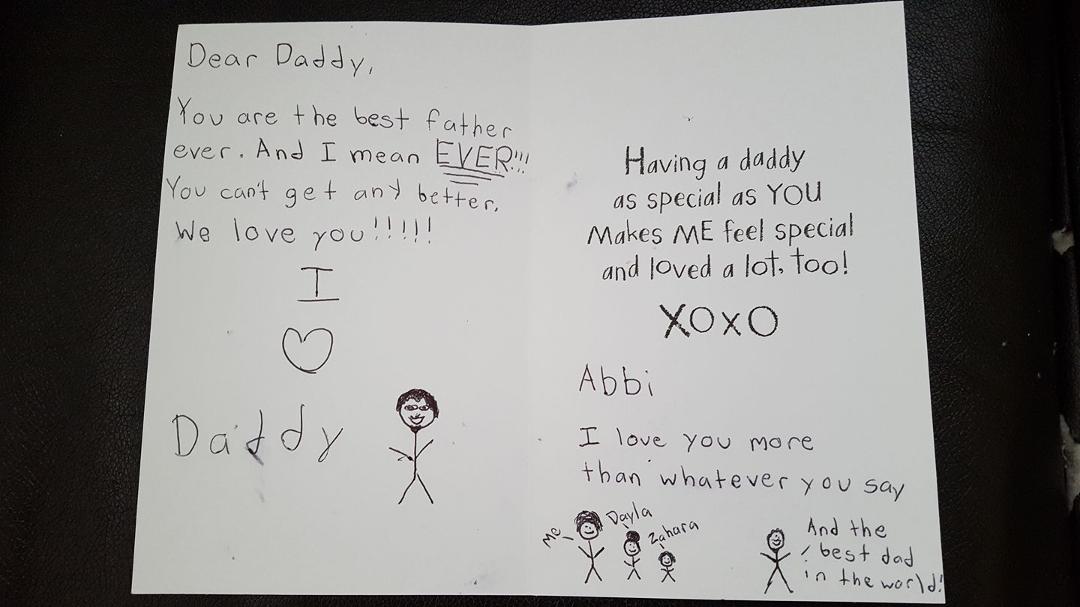 Dear Daddy,
You are the best father
ever. And I mean EVER!!!
You can't get any better.
We love you!!!!!
I
♡
Daddy
Having a daddy
as special as YOU
Makes ME feel special
and loved a lot, too!
XOXO
Abbi
I love you more
than whatever you say
Me
Dayla
Zahara
And the
best dad
in the world!